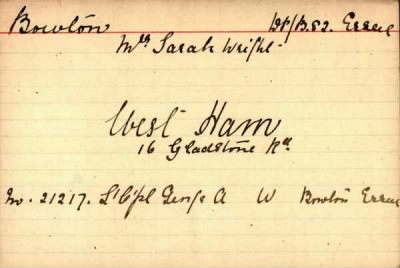 Bowton W/B.52. Essex
Mrs Sarah Wright
West Ham
16 Gladstone Rd.
No. 21217. L'Cpl George A W Bowton Essex